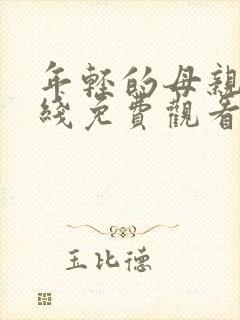 年轻的母親
綫免費觀看
玉比德